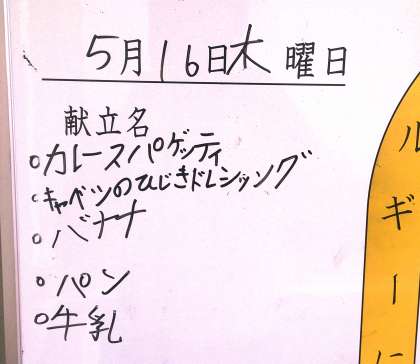 5月16日木曜日
献立名
○カレースパゲッティ
○キャベツのひじきドレッシング
○バナナ
○パン
○牛乳
ルギーに